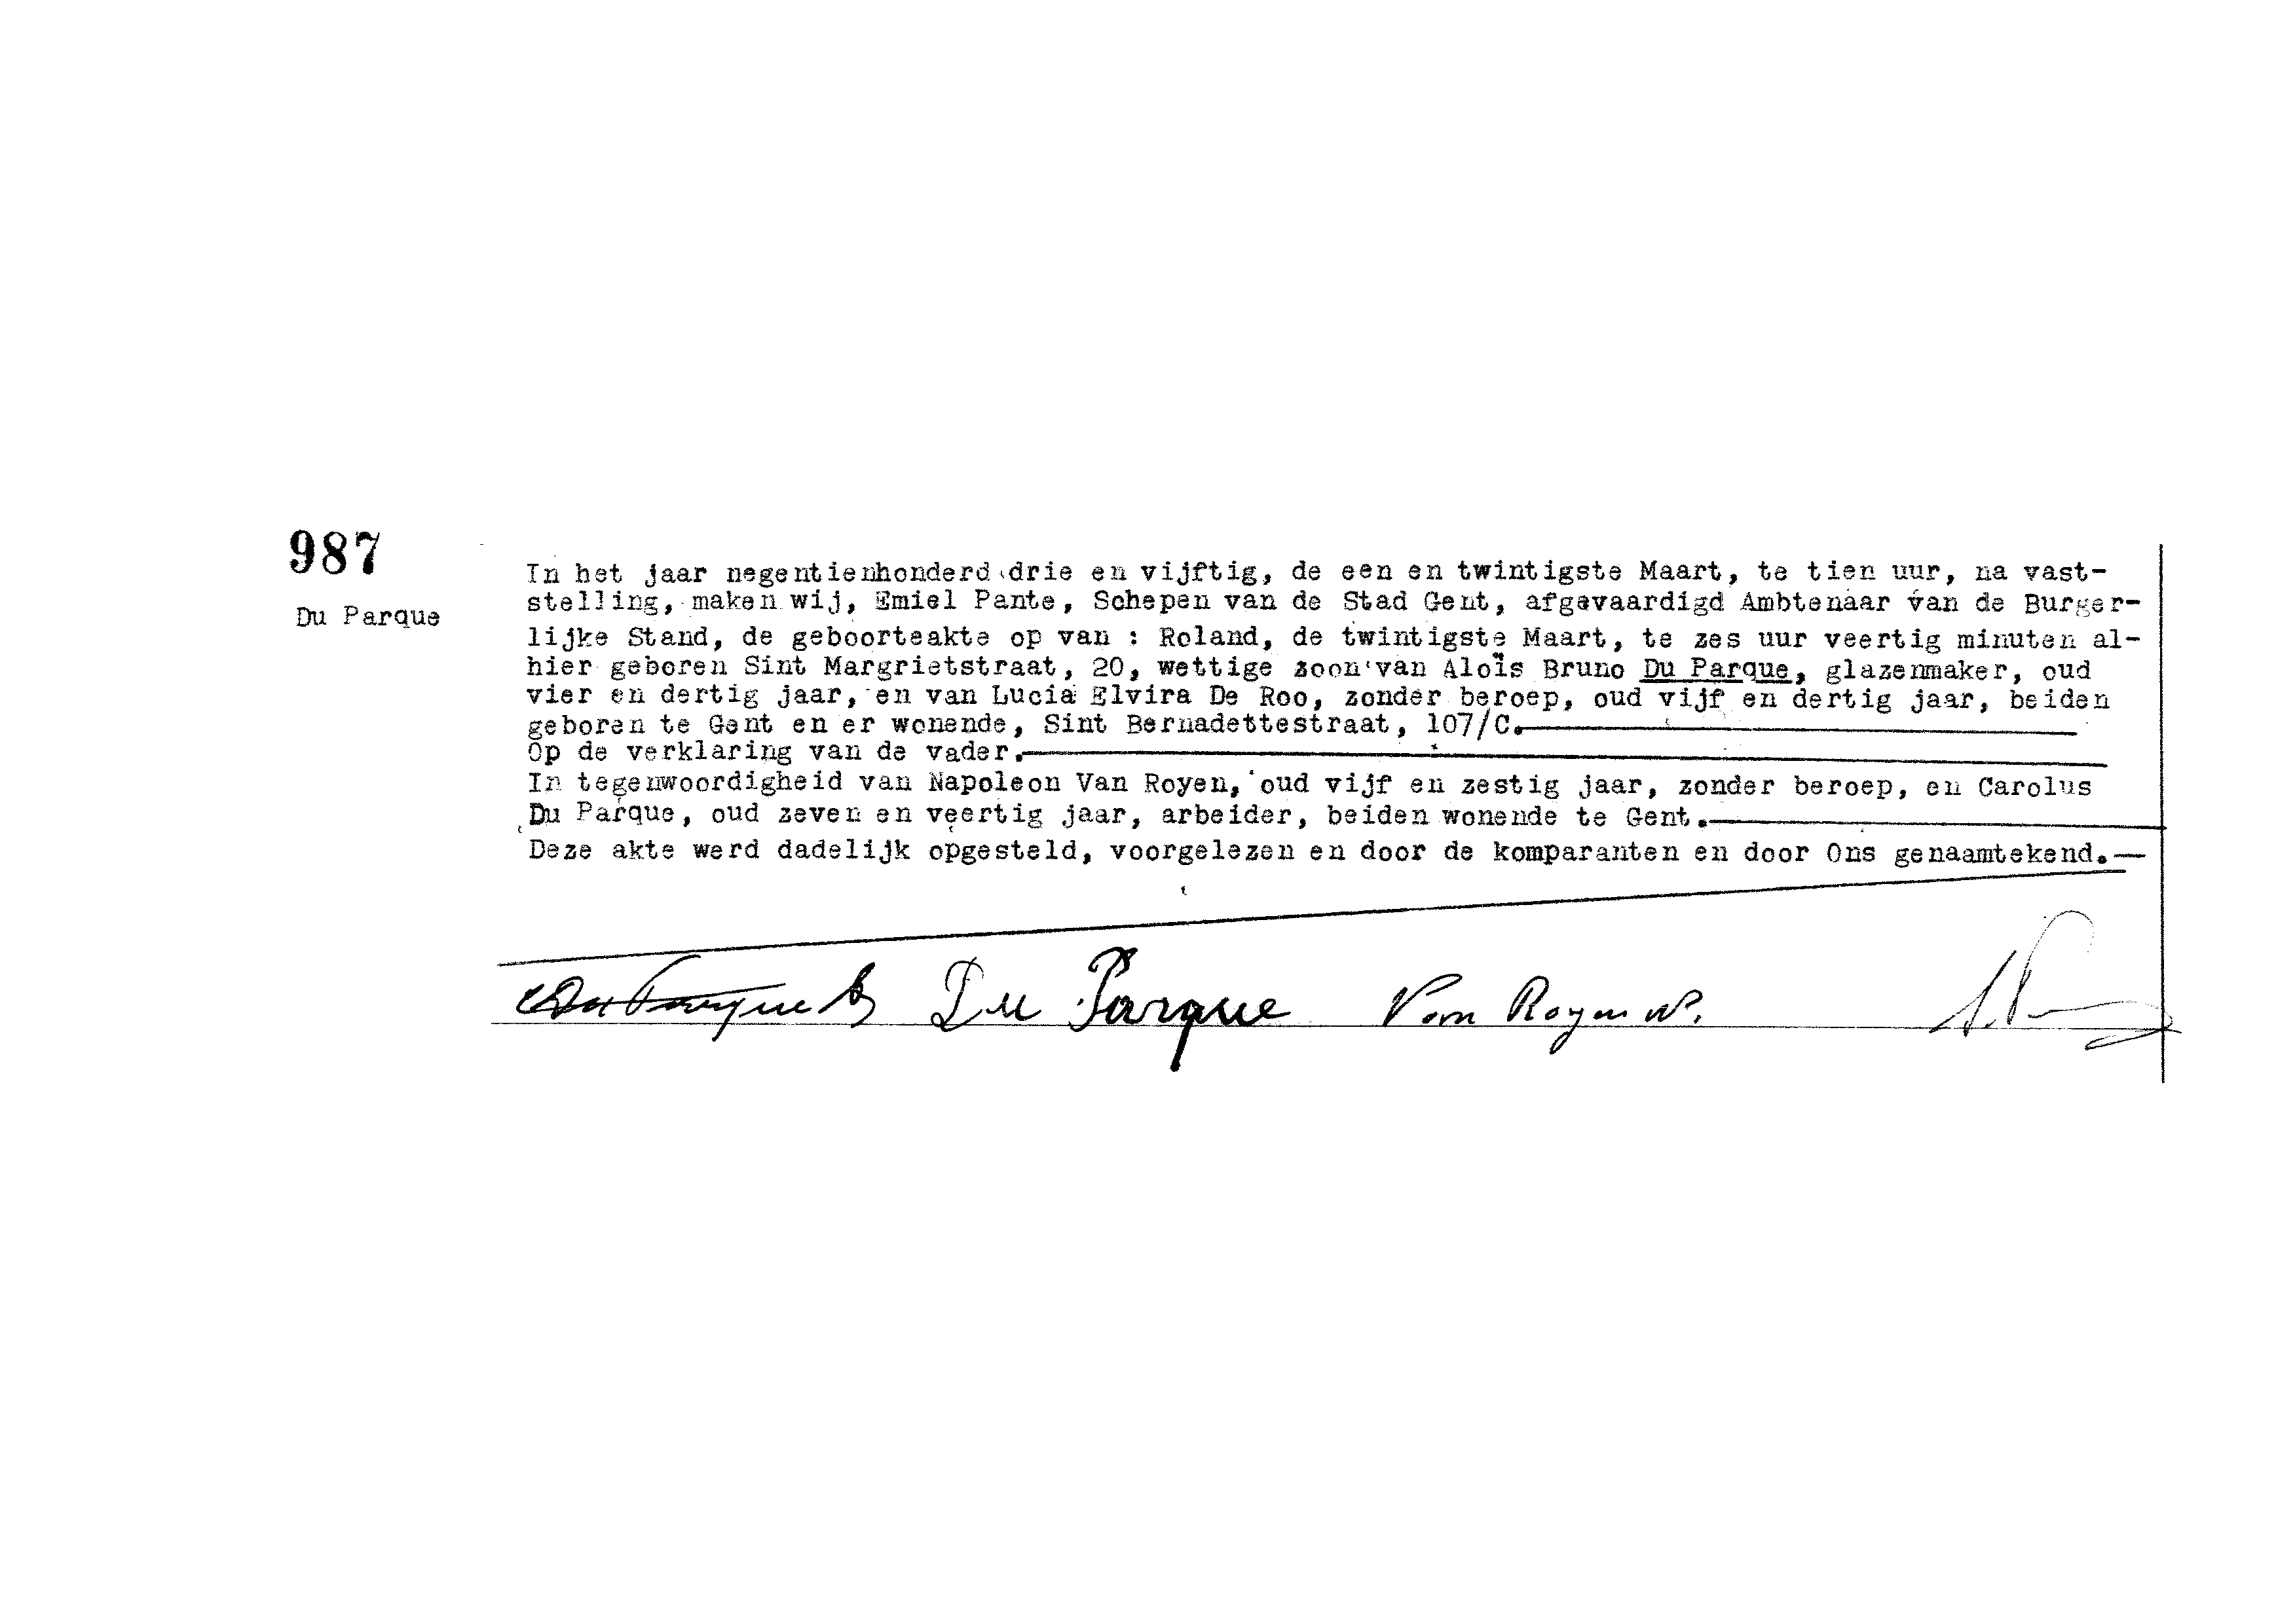 987
Du Parque
In het jaar negentienhonderd drie en vijftig, de een en twintigste Maart, te tien uur, na vast-
stelling, maken wij, Emiel Pante, Schepen van de Stad Gent, afgevaardigd Ambtenaar van de Burger-
lijke Stand, de geboorteakte op van : Roland, de twintigste Maart, te zes uur veertig minuten al-
hier geboren Sint Margrietstraat, 20, wettige zoon van Aloïs Bruno Du Parque, glazenmaker, oud
vier en dertig jaar, en van Lucia Elvira De Roo, zonder beroep, oud vijf en dertig jaar, beiden
geboren te Gent en er wonende, Sint Bernadettestraat, 107/C.
Op de verklaring van de vader.
In tegenwoordigheid van Napoleon Van Royen, oud vijf en zestig jaar, zonder beroep, en Carolus
Du Parque, oud zeven en veertig jaar, arbeider, beiden wonende te Gent.
Deze akte werd dadelijk opgesteld, voorgelezen en door de komparanten en door Ons genaamtekend.
Du Parque Du Parque Van Royen N.